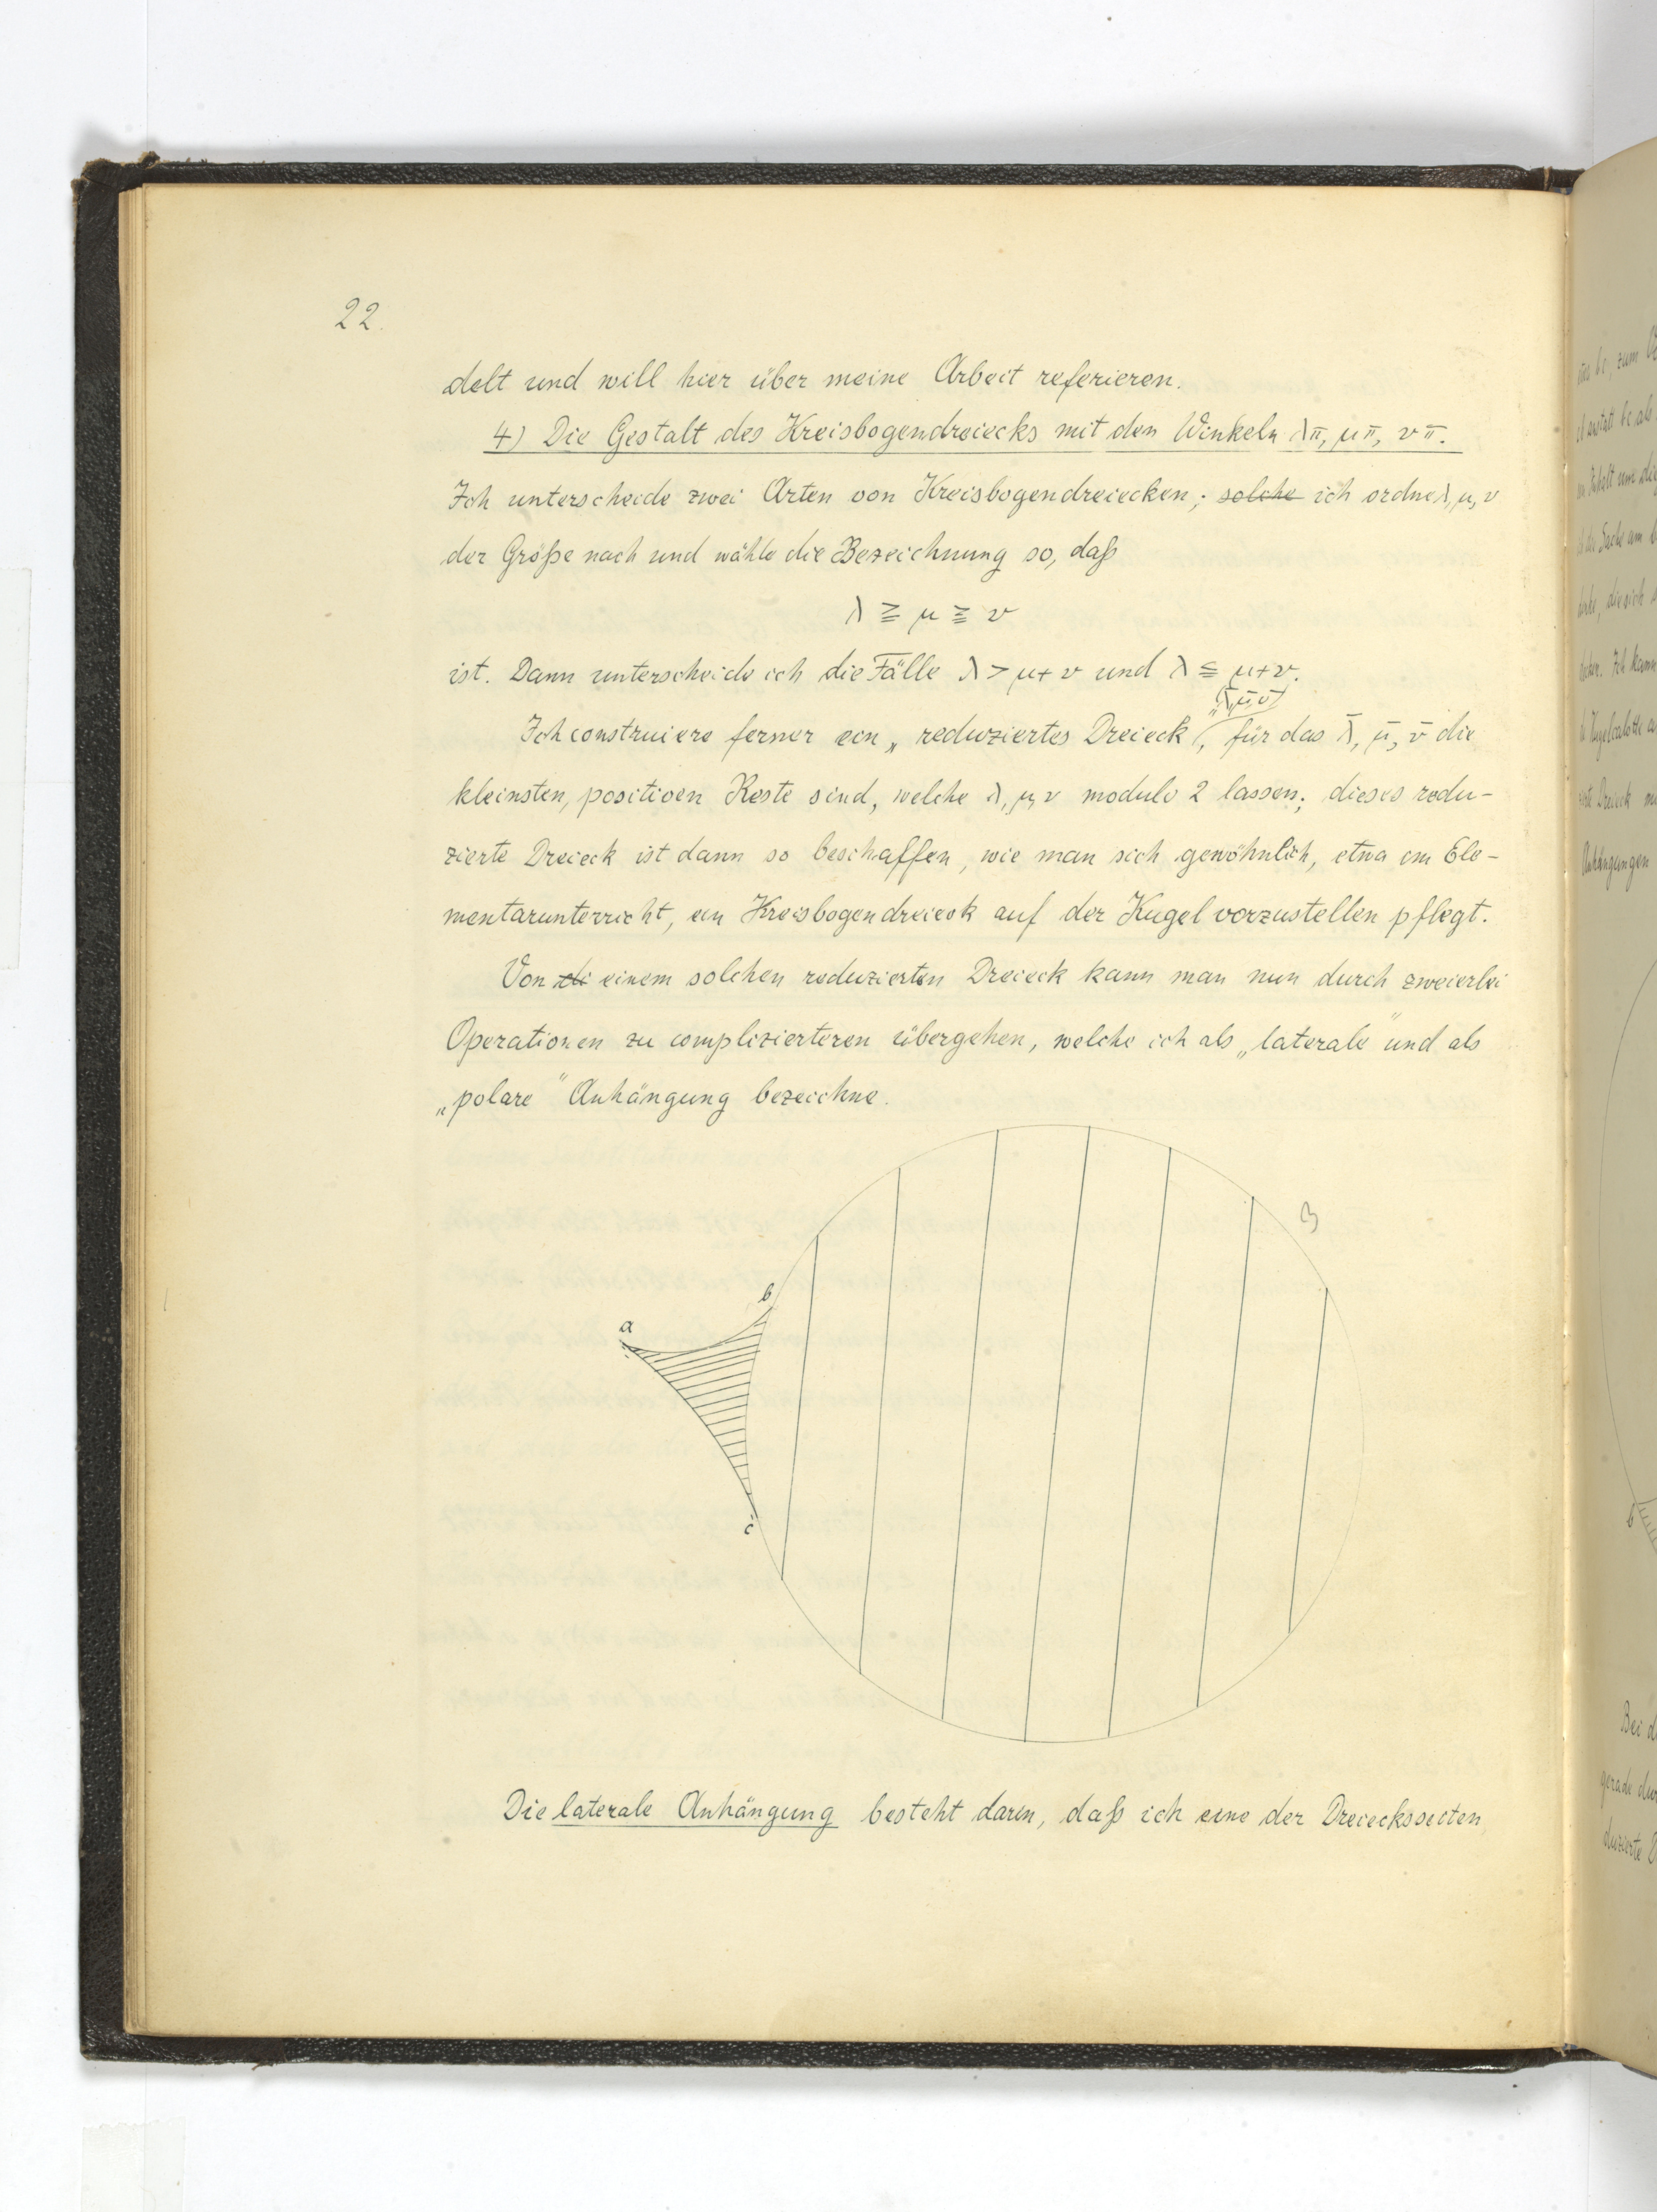 22.
delt und will hier über meine Arbeit referieren.
4) Die Gestalt des Kreisbogendreiecks mit den Winkeln λπ, μπ, νπ.
Ich unterscheide zwei Arten von Kreisbogendreiecken; solche ich ordne λ, μ, ν
der Größe nach und wähle die Bezeichnung so, daß
λ ≧ μ ≧ ν
ist. Dann unterscheide ich die Fälle λ > μ+ν und λ ≦ μ+ν.
Ich construiere ferner ein „reduziertes Dreieck" (λ̄, μ̄, ν̄), für das λ̄, μ̄, ν̄ die
kleinsten, positiven Reste sind, welche λ, μ, ν modulo 2 lassen; dieses redu-
zierte Dreieck ist dann so beschaffen, wie man sich gewöhnlich, etwa im Ele-
mentarunterricht, ein Kreisbogendreieck auf der Kugel vorzustellen pflegt.
Von einem solchen reduzierten Dreieck kann man nun durch zweierlei
Operationen zu complizierteren übergehen, welche ich als „laterale" und als
„polare" Anhängung bezeichne.
a
b
c
Die laterale Anhängung besteht darin, daß ich eine der Dreiecksseiten